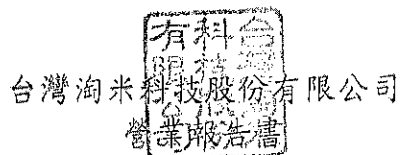 台灣淘米科技股份有限公司
營業報告書